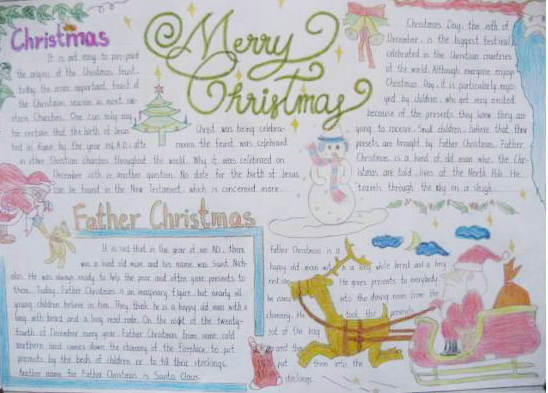 Christmas
It is not easy to pin-point
the origins of the Christmas feast,
today the most important feast of
the Christmas season in most wes-
tern Churches. One can only say
for certain that the birth of Jesus Christ was being celebra-
ted in Rome by the year A.D. after the feast was celebrated
in other Christian churches throughout the world. Why it was celebrated on
December 25th is another question. No date for the birth of Jesus
can be found in the New Testament, which is concerned more
Merry
Christmas
Christmas Day, the 25th of
December, is the biggest festival
celebrated in the Christian countries
of the world. Although everyone enjoys
Christmas Day, it is particularly enjo-
yed by children, who get very excited
because of the presents they know they are
going to receive. Small children believe that their
presets are brought by Father Christmas. Father
Christmas is a kind of old man who, the Chr-
istmas are told, lives at the North Pole. He
travels through the sky on a sleigh
Father Christmas
It is said that in the year of A.D., there
was a kind old man and his name was Saint Nich-
olas. He was always ready to help the poor and often gave presents to
them. Today, Father Christmas is an imaginary figure, but nearly all
young children believe in him. They think he is a happy old man with a
long white beard and a long red robe. On the night of the twenty-
fourth of December every year, Father Christmas from some cold
northern land comes down the chimney of the fireplace to put
presents by the beds of children or to fill their stockings.
Another name for Father Christmas is Santa Claus.
Father Christmas is a
happy old man with a long white beard and a long
red He gives presents to everybody
he comes into the dining room from the
chimney. He took the presents
out of the bag
and the
put them into the
stockings.